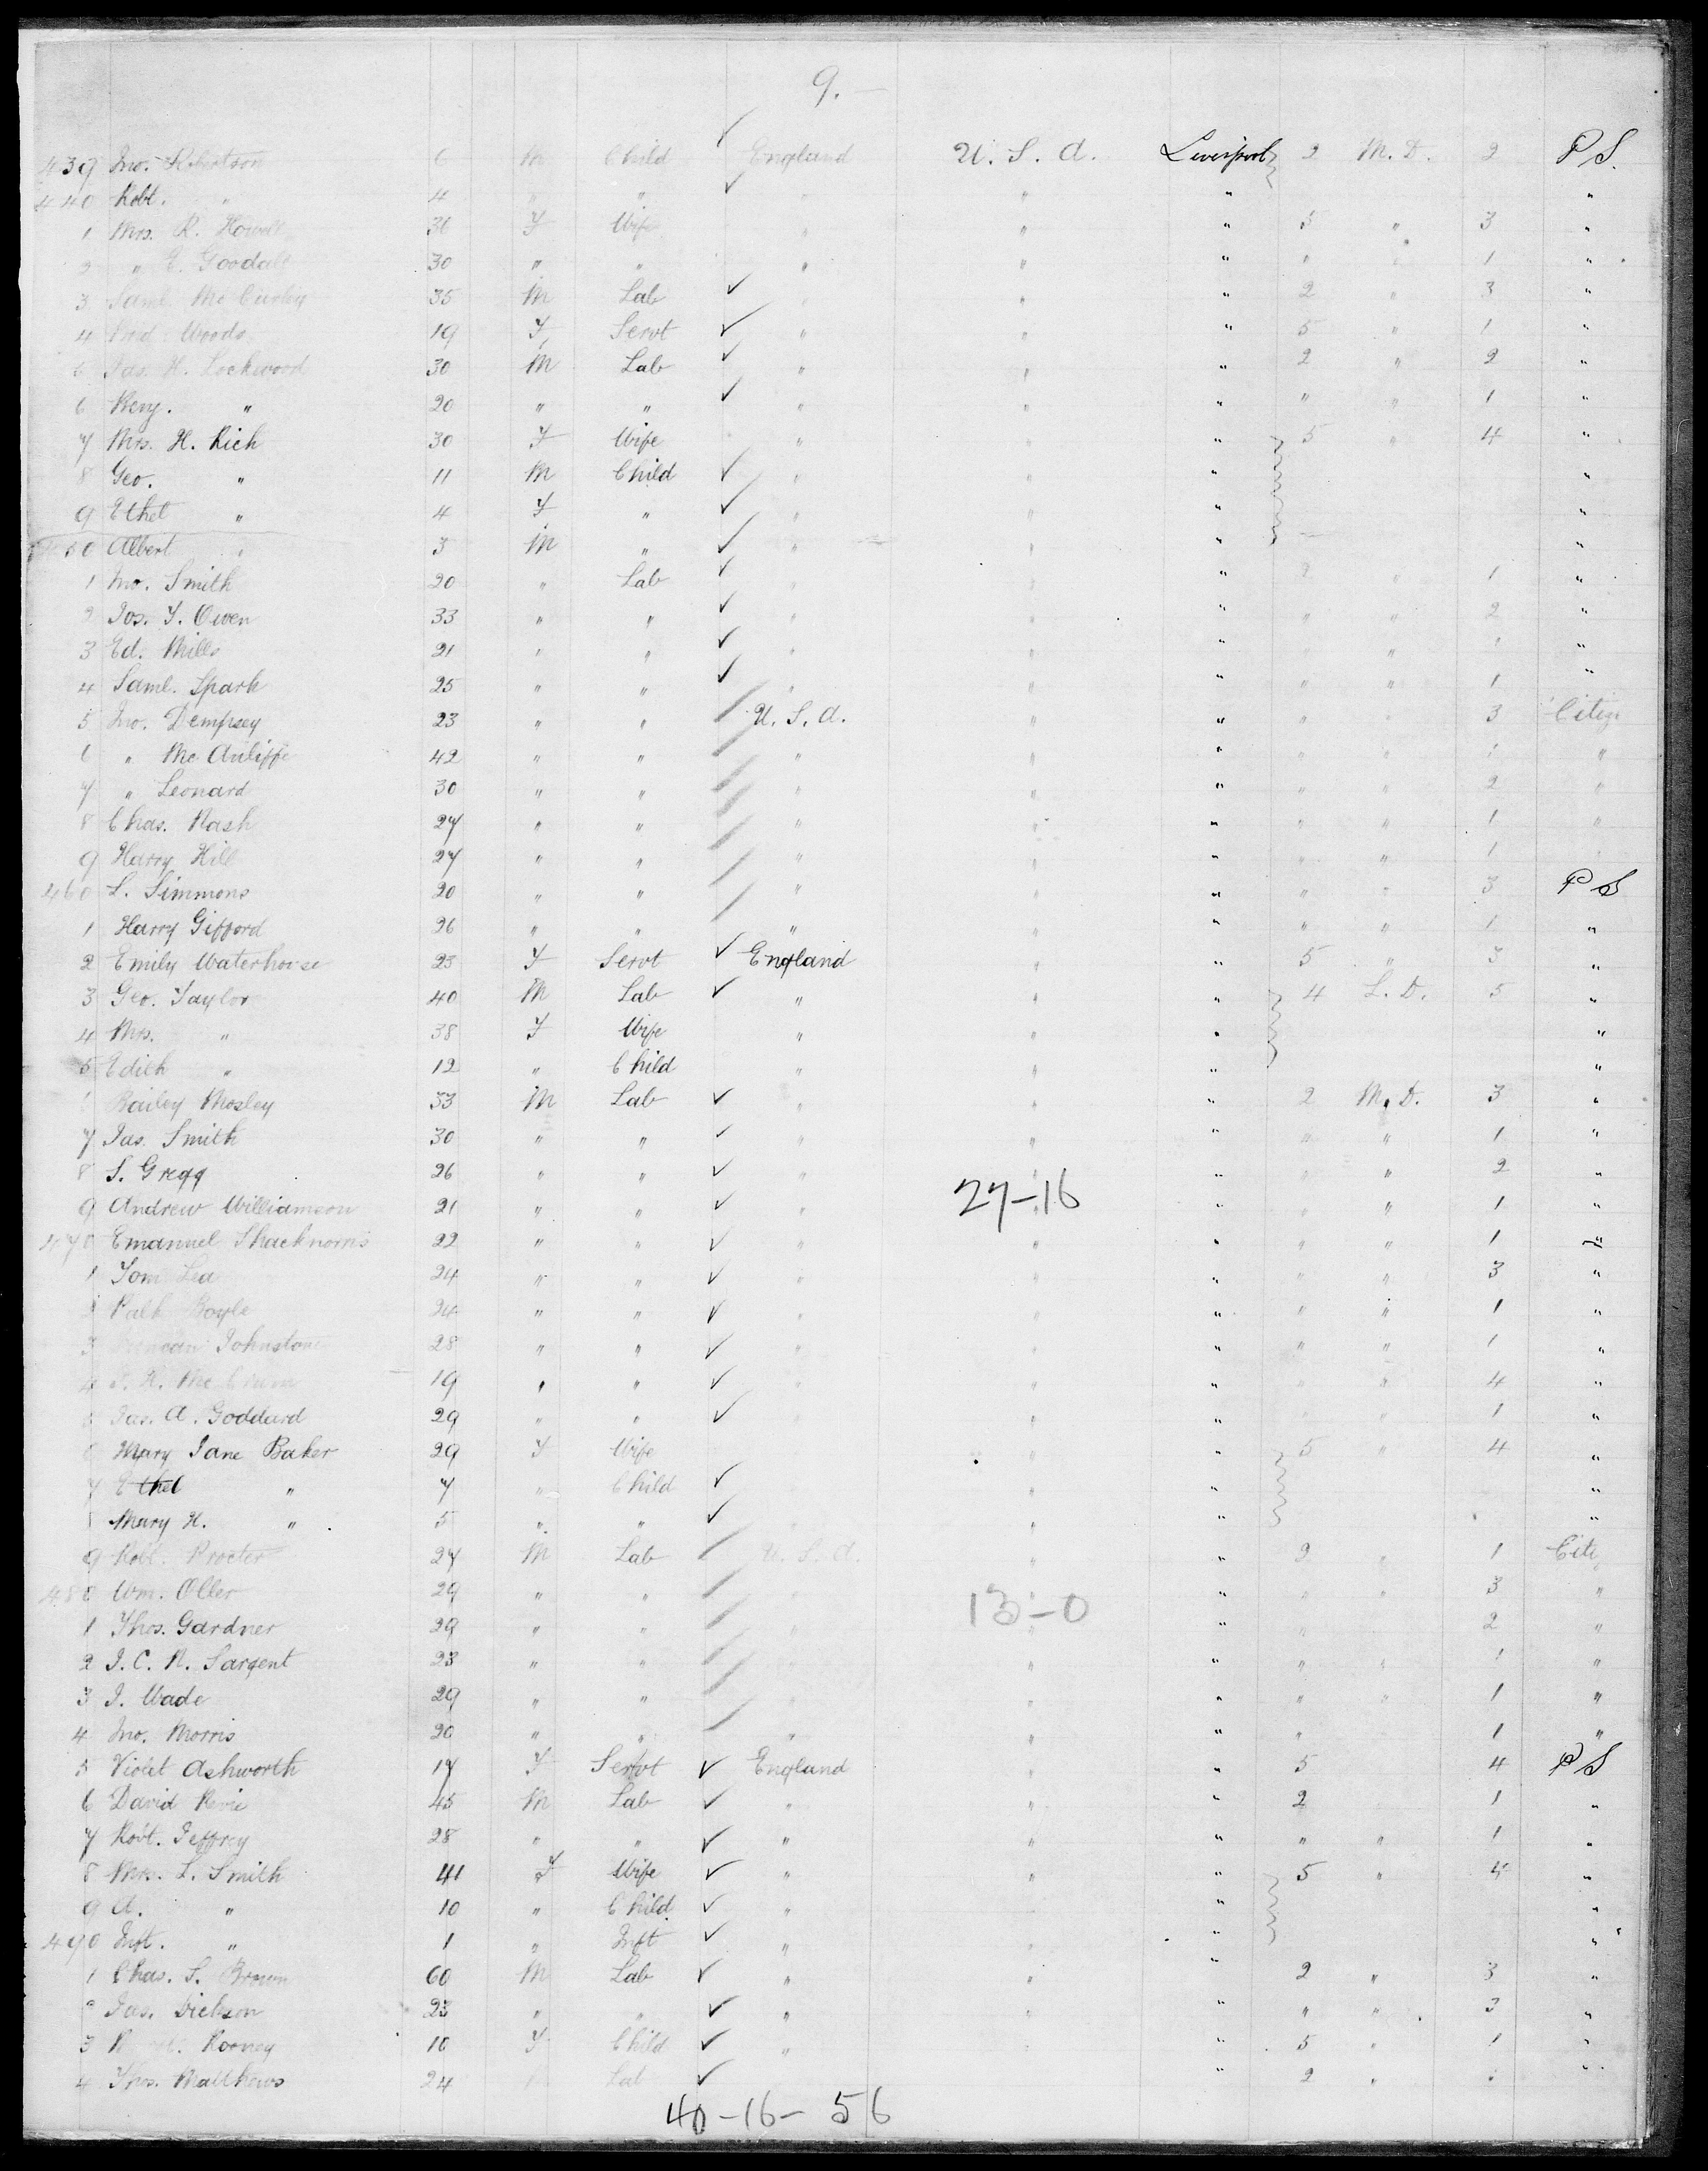 9. —
439 Jno. Robertson 6 M Child ✓ England U. S. A. Liverpool 2 M. D. 2 P S.
440 Robt. " 4 " " ✓ " " " "
1 Mrs. R. Howell 36 F Wife " " " 5 " 3 "
2 " E. Goodall 30 " " " " " " " 1 "
3 Saml. Mc 35 M Lab ✓ " " " 2 " 3 "
4 Woods 19 F Servt ✓ " " " 5 " 1 "
Jas. H. Lockwood 30 M Lab ✓ " " " 2 " 2 "
6 " 20 " " ✓ " " " " " 1 "
7 Mrs. H. Rich 30 F Wife " " " 5 " 4 "
8 Geo. " 11 M Child ✓ " " " "
9 Ethel " 4 F " ✓ " " " "
450 Albert " 3 M " ✓ " " " "
1 Jno. Smith 20 " Lab ✓ " " " 2 " 1 "
2 Jos. Y. Owen 33 " " ✓ " " " " " 2 "
3 Ed. Mills 21 " " ✓ " " " " " " "
4 Saml. Spark 25 " " ✓ " " " " " 1 "
5 Jno. Dempsey 23 " " / U. S. A. " " " " 3 Citizn
6 " Mc Auliffe 42 " " / " " " " " 1 "
7 " Leonard 30 " " / " " " " " 2 "
8 Chas. Nash 27 " " / " " " " " 1 "
9 Harry Hill 27 " " / " " " " " 1 "
460 L. Simmons 20 " " / " " " " " 3 P S
1 Harry Gifford 26 " " / " " " " " 1 "
2 Emily Waterhouse 23 F Servt ✓ England " " 5 " 3 "
3 Geo. Taylor 40 M Lab ✓ " " " 4 L. D. 5 "
4 Mrs. " 38 F Wife " " " "
5 Edith " 12 " Child " " " "
Bailey Mosley 33 M Lab ✓ " " " 2 M. D. 3 "
7 Jas. Smith 30 " " ✓ " " " " " 1 "
8 S. Gregg 26 " " ✓ " " " " " 2 "
27-16
9 Andrew Williamson 21 " " ✓ " " " " " 1 "
470 Emanuel Shacknorris 22 " " ✓ " " " " " 1 "
1 Tom Lea 24 " " ✓ " " " " " 3 "
Boyle 24 " " ✓ " " " " " 1 "
3 Duncan Johnston 28 " " ✓ " " " " " 1 "
4 19 " " ✓ " " " " " 4 "
Jas. A. Goddard 29 " " ✓ " " " " " 1 "
Mary Jane Baker 29 F Wife " " 5 " 4 "
7 Ethel " 7 " Child ✓ " " "
Mary H. " 5 " " ✓ " " "
9 Robt. Procter 27 M Lab / U. S. A. " " 2 " 1 Citz
480 Wm. Oller 29 " " / " " " " " 3 "
13-0
1 Thos. Gardner 29 " " / " " " " 2 "
2 J. C. N. Sargent 23 " " / " " " " 1 "
3 J. Wade 29 " " / " " " " 1 "
4 Jno. Morris 20 " " / " " " " 1 "
5 Violet Ashworth 17 F Servt ✓ England " " 5 4 P S
6 David 45 M Lab ✓ " " " 2 1 "
7 Robt. Jeffrey 28 " " ✓ " " " " " 1 "
8 Mrs. L. Smith 41 F Wife ✓ " " " 5 " 4 "
9 A. " 10 " Child ✓ " " "
490 Inft. " 1 " Inft ✓ " " " "
1 Chas. S. Brown 60 M Lab ✓ " " " 2 " 3 "
Jas. Dickson 23 " " ✓ " " " " 3 "
3 Rooney 10 F Child ✓ " " 5 " 1 "
4 Thos. Matthews 24 Lab ✓ " 2 " "
40-16- 56